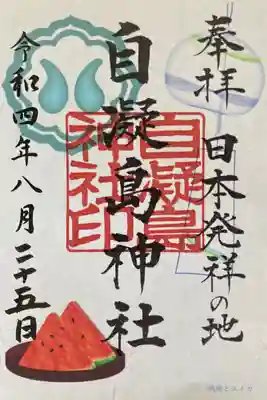 奉拝
日本発祥の地
自凝島神社
自凝島
神社印
令和四年八月二十五日